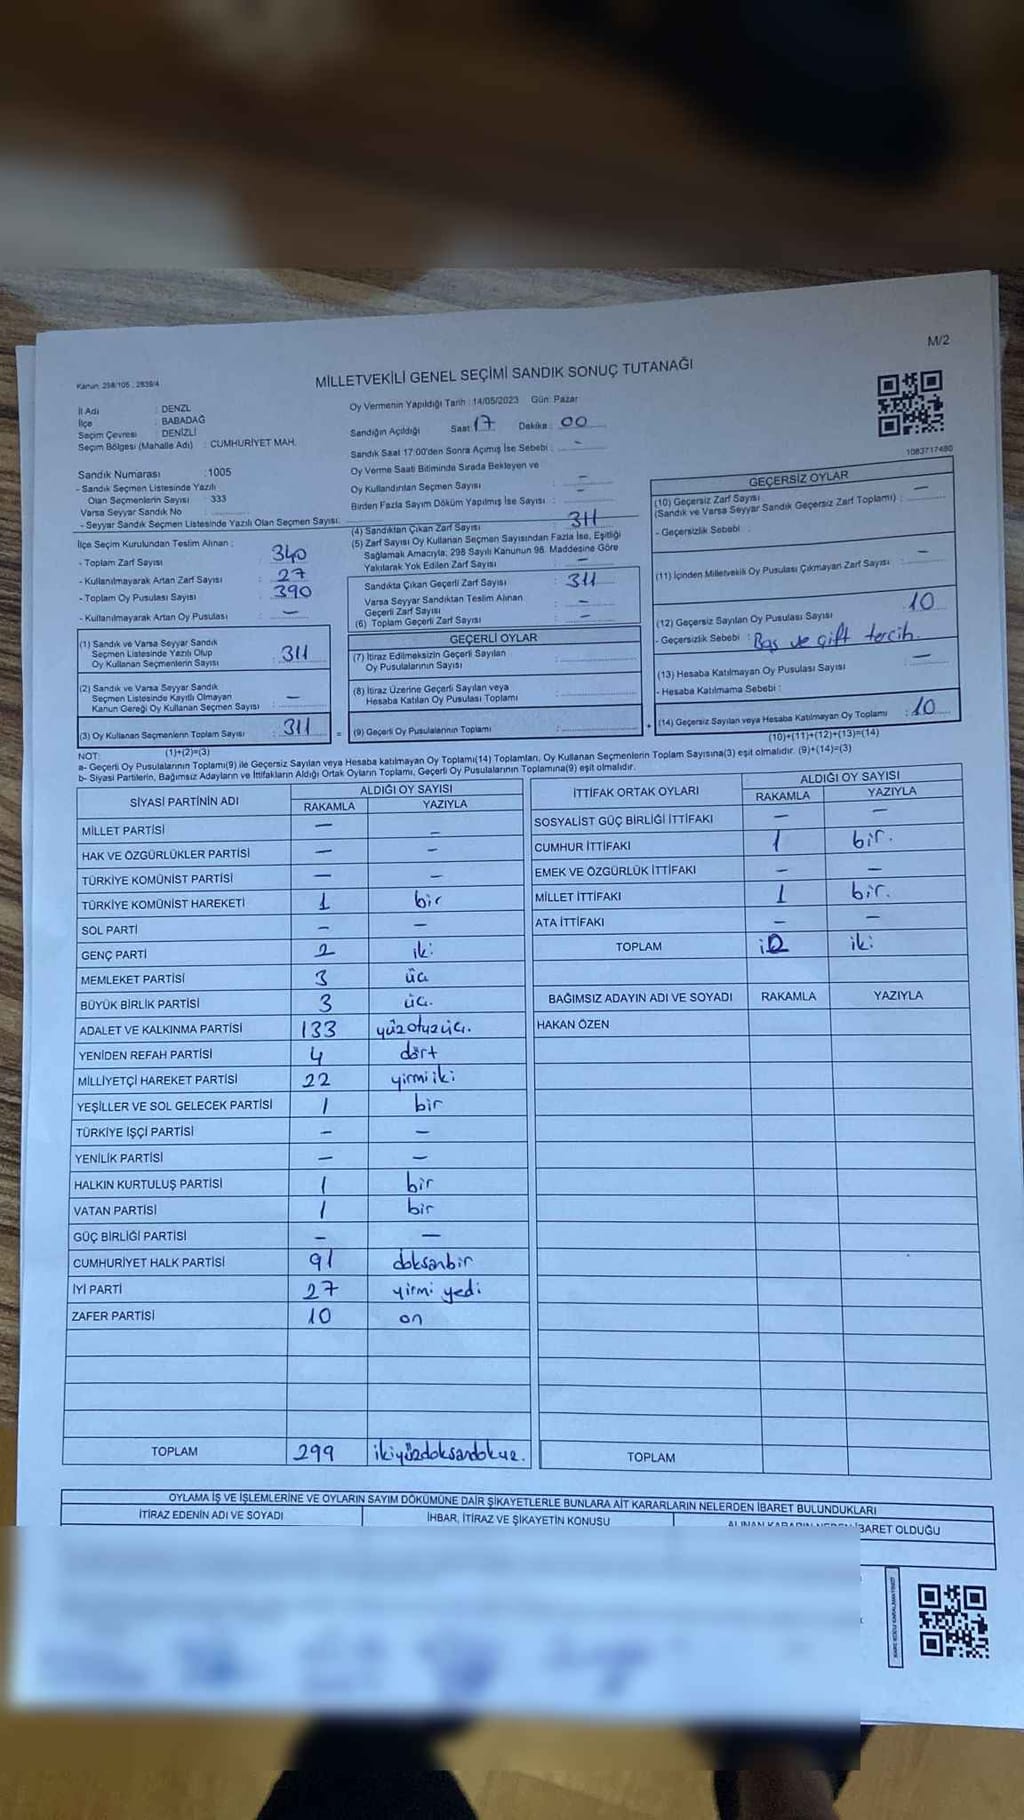 M/2
Kanun: 298/105 , 2839/4
MİLLETVEKİLİ GENEL SEÇİMİ SANDIK SONUÇ TUTANAĞI
İl Adı : DENZL
İlçe : BABADAĞ
Seçim Çevresi : DENİZLİ
Seçim Bölgesi (Mahalle Adı) : CUMHURİYET MAH.
Sandık Numarası : 1005
- Sandık Seçmen Listesinde Yazılı
Olan Seçmenlerin Sayısı : 333
Varsa Seyyar Sandık No
- Seyyar Sandık Seçmen Listesinde Yazılı Olan Seçmen Sayısı:
Oy Vermenin Yapıldığı Tarih : 14/05/2023 Gün: Pazar
Sandığın Açıldığı Saat 17 Dakika : 00
Sandık Saat 17:00'den Sonra Açımış İse Sebebi : -
Oy Verme Saati Bitiminde Sırada Bekleyen ve
Oy Kullandırılan Seçmen Sayısı : -
Birden Fazla Sayım Döküm Yapılmış İse Sayısı : -
1083717480
İlçe Seçim Kurulundan Teslim Alınan :
- Toplam Zarf Sayısı : 340
- Kullanılmayarak Artan Zarf Sayısı : 27
- Toplam Oy Pusulası Sayısı : 390
- Kullanılmayarak Artan Oy Pusulası : -
(1) Sandık ve Varsa Seyyar Sandık
Seçmen Listesinde Yazılı Olup
Oy Kullanan Seçmenlerin Sayısı : 311
(2) Sandık ve Varsa Seyyar Sandık
Seçmen Listesinde Kayıtlı Olmayan
Kanun Gereği Oy Kullanan Seçmen Sayısı : -
(3) Oy Kullanan Seçmenlerin Toplam Sayısı : 311
(1)+(2)=(3)
(4) Sandıktan Çıkan Zarf Sayısı : 311
(5) Zarf Sayısı Oy Kullanan Seçmen Sayısından Fazla İse, Eşitliği
Sağlamak Amacıyla, 298 Sayılı Kanunun 98. Maddesine Göre
Yakılarak Yok Edilen Zarf Sayısı : -
Sandıkta Çıkan Geçerli Zarf Sayısı : 311
Varsa Seyyar Sandıktan Teslim Alınan
Geçerli Zarf Sayısı : -
(6) Toplam Geçerli Zarf Sayısı : -
GEÇERLİ OYLAR
(7) İtiraz Edilmeksizin Geçerli Sayılan
Oy Pusulalarının Sayısı :
(8) İtiraz Üzerine Geçerli Sayılan veya
Hesaba Katılan Oy Pusulası Toplamı :
= (9) Geçerli Oy Pusulalarının Toplamı : +
GEÇERSİZ OYLAR
(10) Geçersiz Zarf Sayısı
(Sandık ve Varsa Seyyar Sandık Geçersiz Zarf Toplamı) : -
- Geçersizlik Sebebi :
(11) İçinden Milletvekili Oy Pusulası Çıkmayan Zarf Sayısı : -
(12) Geçersiz Sayılan Oy Pusulası Sayısı : 10
- Geçersizlik Sebebi : Boş ve çift tercih.
(13) Hesaba Katılmayan Oy Pusulası Sayısı : -
- Hesaba Katılmama Sebebi :
(14) Geçersiz Sayılan veya Hesaba Katılmayan Oy Toplamı : 10
(10)+(11)+(12)+(13)=(14)
NOT:
a- Geçerli Oy Pusulalarının Toplamı(9) ile Geçersiz Sayılan veya Hesaba katılmayan Oy Toplamı(14) Toplamları, Oy Kullanan Seçmenlerin Toplam Sayısına(3) eşit olmalıdır. (9)+(14)=(3)
b- Siyasi Partilerin, Bağımsız Adayların ve İttifakların Aldığı Ortak Oyların Toplamı, Geçerli Oy Pusulalarının Toplamına(9) eşit olmalıdır.
SİYASİ PARTİNİN ADI ALDIĞI OY SAYISI
RAKAMLA YAZIYLA
MİLLET PARTİSİ - -
HAK VE ÖZGÜRLÜKLER PARTİSİ - -
TÜRKİYE KOMÜNİST PARTİSİ - -
TÜRKİYE KOMÜNİST HAREKETİ 1 bir
SOL PARTİ - -
GENÇ PARTİ 2 iki
MEMLEKET PARTİSİ 3 üç
BÜYÜK BİRLİK PARTİSİ 3 üç.
ADALET VE KALKINMA PARTİSİ 133 yüzotuzüç.
YENİDEN REFAH PARTİSİ 4 dört
MİLLİYETÇİ HAREKET PARTİSİ 22 yirmiiki
YEŞİLLER VE SOL GELECEK PARTİSİ 1 bir
TÜRKİYE İŞÇİ PARTİSİ - -
YENİLİK PARTİSİ - -
HALKIN KURTULUŞ PARTİSİ 1 bir
VATAN PARTİSİ 1 bir
GÜÇ BİRLİĞİ PARTİSİ - -
CUMHURİYET HALK PARTİSİ 91 doksanbir
İYİ PARTİ 27 yirmi yedi
ZAFER PARTİSİ 10 on
TOPLAM 299 ikiyüzdoksandokuz.
İTTİFAK ORTAK OYLARI ALDIĞI OY SAYISI
RAKAMLA YAZIYLA
SOSYALİST GÜÇ BİRLİĞİ İTTİFAKI - -
CUMHUR İTTİFAKI 1 bir.
EMEK VE ÖZGÜRLÜK İTTİFAKI - -
MİLLET İTTİFAKI 1 bir.
ATA İTTİFAKI - -
TOPLAM 2 iki
BAĞIMSIZ ADAYIN ADI VE SOYADI RAKAMLA YAZIYLA
HAKAN ÖZEN
TOPLAM
OYLAMA İŞ VE İŞLEMLERİNE VE OYLARIN SAYIM DÖKÜMÜNE DAİR ŞİKAYETLERLE BUNLARA AİT KARARLARIN NELERDEN İBARET BULUNDUKLARI
İTİRAZ EDENİN ADI VE SOYADI İHBAR, İTİRAZ VE ŞİKAYETİN KONUSU ALINAN KARARIN NEDEN İBARET OLDUĞU